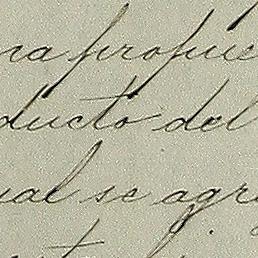 na propie
ducto del
ual se agr